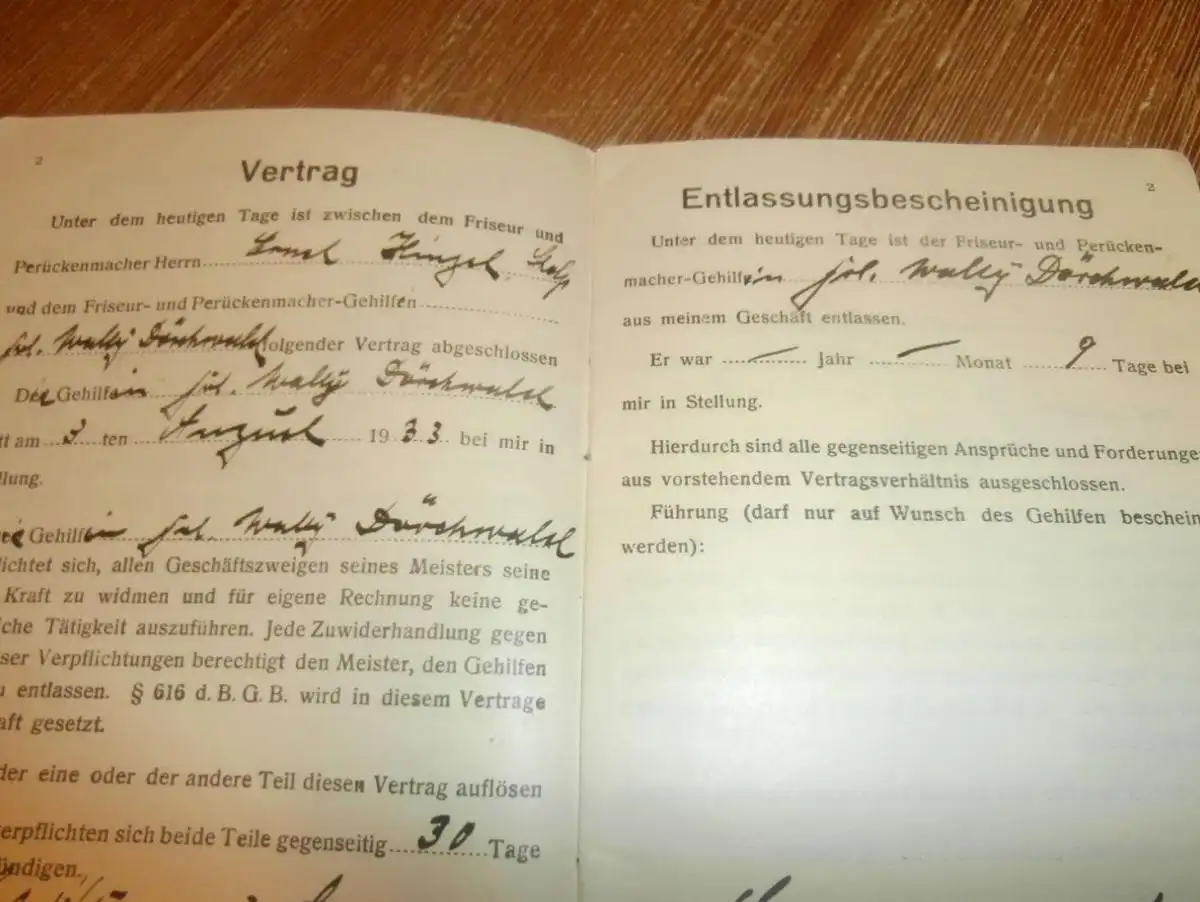 2
Vertrag
Unter dem heutigen Tage ist zwischen dem Friseur und
Perückenmacher Herrn Ernst Hinzel, Stolp
und dem Friseur- und Perückenmacher-Gehilfen
frl. Wally Dörchwald folgender Vertrag abgeschlossen
Die Gehilfin frl. Wally Dörchwald
tt am 3 ten August 1933 bei mir in
llung.
Gehilfin frl. Wally Dörchwald
lichtet sich, allen Geschäftszweigen seines Meisters seine
Kraft zu widmen und für eigene Rechnung keine ge-
che Tätigkeit auszuführen. Jede Zuwiderhandlung gegen
ser Verpflichtungen berechtigt den Meister, den Gehilfen
u entlassen. § 616 d. B. G. B. wird in diesem Vertrage
aft gesetzt.
der eine oder der andere Teil diesen Vertrag auflösen
erpflichten sich beide Teile gegenseitig 30 Tage
ündigen.
2
Entlassungsbescheinigung
Unter dem heutigen Tage ist der Friseur- und Perücken-
macher-Gehilfin frl. Wally Dörchwald
aus meinem Geschäft entlassen.
Er war — Jahr — Monat 9 Tage bei
mir in Stellung.
Hierdurch sind alle gegenseitigen Ansprüche und Forderunge
aus vorstehendem Vertragsverhältnis ausgeschlossen.
Führung (darf nur auf Wunsch des Gehilfen beschein
werden):